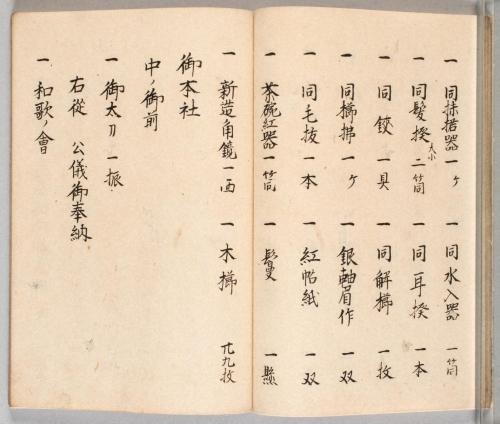 一 同抹措器 一ヶ 一 同水入器 一箇
一 同髮撥 大小 二箇 一 同耳撥 一本
一 同鋏 一具 一 同解櫛 一枚
一 同櫛拂 一ヶ 一 銀軸眉作 一双
一 同毛抜 一本 一 紅帖紙 一双
一 茶碗紅器 一箇 一 鬘 一懸
一 新造角鏡 一面 一 木櫛 廿九枚
御本社
中ノ御前
一 御太刀 一振
右從 公儀御奉納
一 和歌ノ會